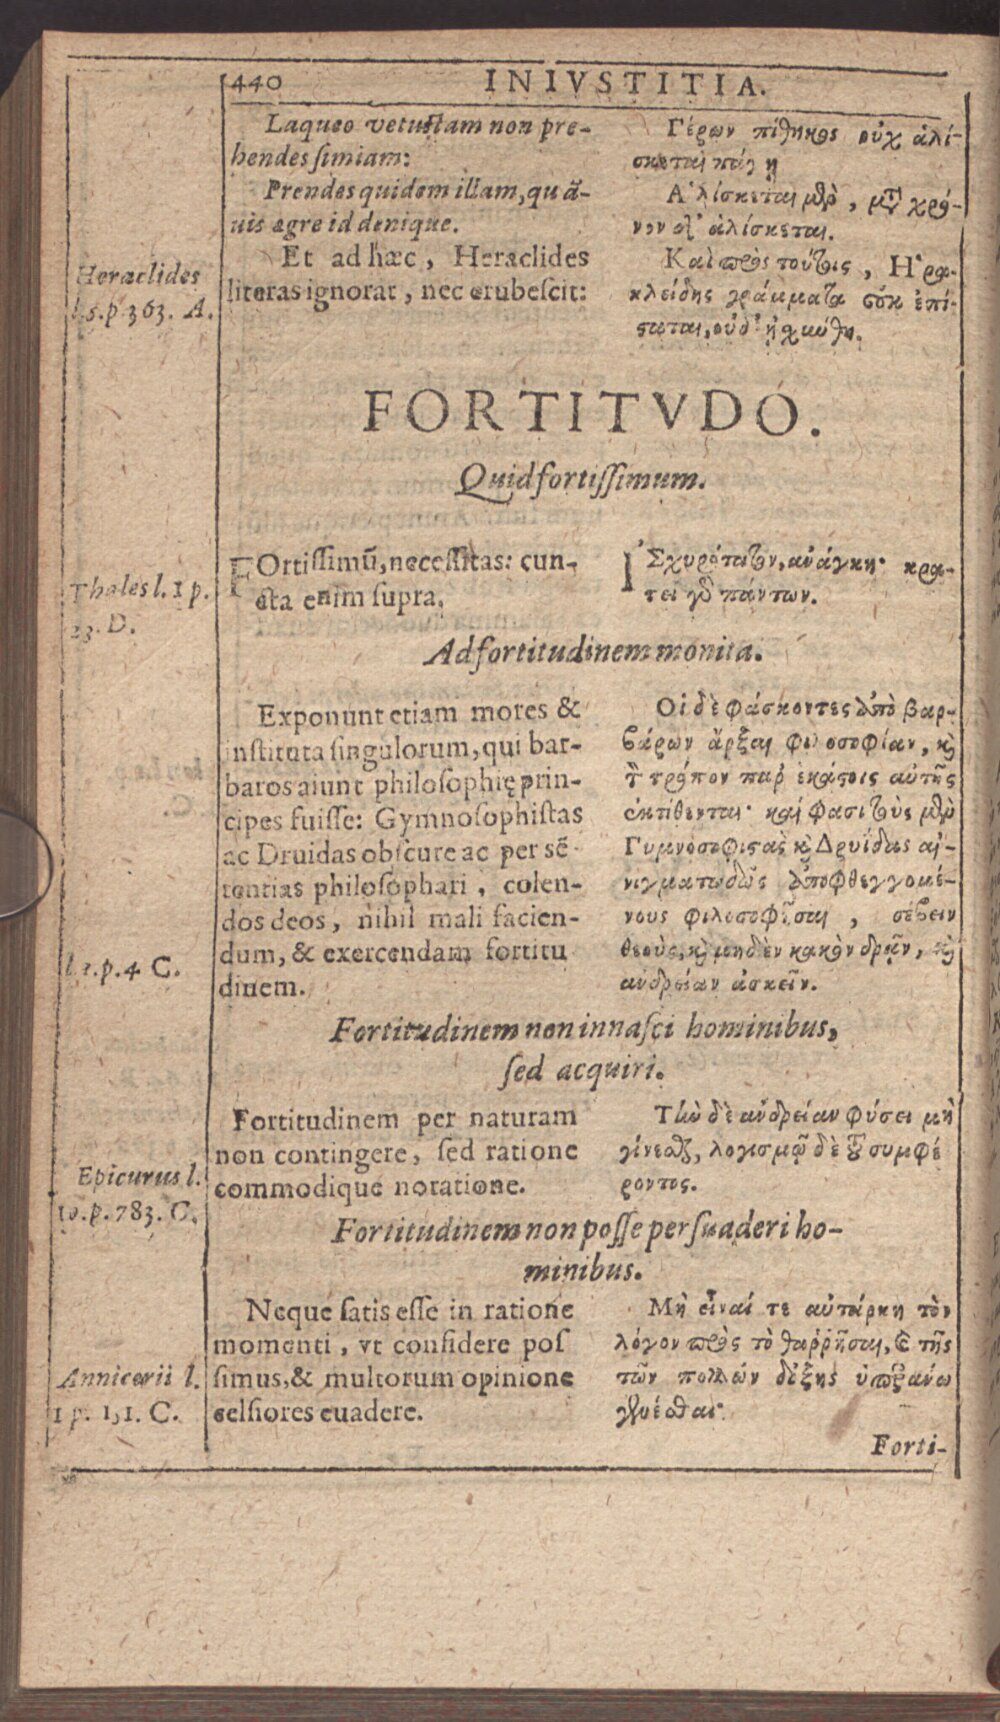 440 INIVSTITIA.
Laqueo vetustam non pre-
hendes simiam:
Prendes quidem illam, quã-
uis egre id denique.
Et ad hæc, Heraclides
literas ignorat, nec erubescit:
Heraclides
l.5.p 363. A.
Γέρων πίθηκος οὐχ ἁλί-
σκεται πάγῃ
Ἁλίσκεται μὲν, μετὰ χρό-
νον δ' ἁλίσκεται.
Καὶ πρὸς τούτοις, Ἡρα-
κλείδης γράμματα οὐκ ἐπί-
σταται, οὐδ' ᾐσχύνθη.
FORTITVDO.
Quid fortissimum.
FOrtissimũ, necessitas: cun-
cta enim supra.
Thales l. 1 p.
23. D.
ἸΣχυρότατον, ἀνάγκη· κρα-
τεῖ γὰρ πάντων.
Ad fortitudinem monita.
Exponunt etiam mores &
instituta singulorum, qui bar-
baros aiunt philosophię prin-
cipes fuisse: Gymnosophistas
ac Druidas obscure ac per sẽ-
tentias philosophari, colen-
dos deos, nihil mali facien-
dum, & exercendam fortitu
dinem.
l.1.p.4 C.
Οἱ δὲ φάσκοντες ἀπὸ βαρ-
βάρων ἄρξαι φιλοσοφίαν, καὶ
τὸν τρόπον παρ' ἑκάστοις αὐτῆς
ἐκτίθενται· καί φασι τοὺς μὲν
Γυμνοσοφιστὰς καὶ Δρυΐδας αἰ-
νιγματωδῶς ἀποφθεγγομέ-
νους φιλοσοφῆσαι, σέβειν
θεοὺς, καὶ μηδὲν κακὸν δρᾷν, καὶ
ἀνδρείαν ἀσκεῖν.
Fortitudinem non innasci hominibus,
sed acquiri.
Fortitudinem per naturam
non contingere, sed ratione
commodique notatione.
Epicurus l.
10.p.783. C.
Τὴν δὲ ἀνδρείαν φύσει μὴ
γίνεσθαι, λογισμῷ δὲ τοῦ συμφέ
ροντος.
Fortitudinem non posse persuaderi ho-
minibus.
Neque satis esse in ratione
momenti, vt confidere pos
simus, & multorum opinione
celsiores euadere.
Annicerii l.
Μὴ εἶναί τε αὐτάρκη τὸν
λόγον πρὸς τὸ θαῤῥῆσαι, καὶ τῆς
τῶν πολλῶν δόξης ὑπεράνω
γενέσθαι·
Forti-